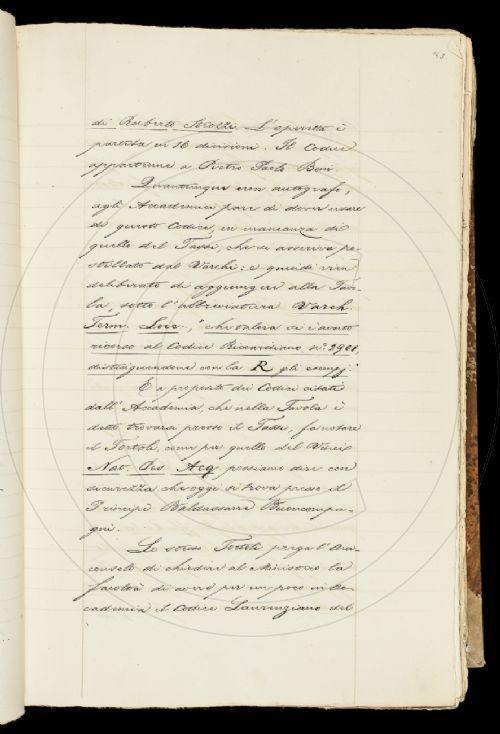 di Ruberto Strozzi. L'operetta è
partita in 16 divisioni. Il Codice
appartenne a Pietro Paolo Boni.
Quantunque non autografo,
agli Accademici pare di dover usare
di questo Codice, in mancanza di
quello del Tassi, che si asseriva po=
stillato dal Varchi: e quindi vien
deliberato di aggiungere alla Tavo=
la, sotto l'abbreviatura Varch.
Term. Lois., "che talora si è avuto
ricorso al Codice Riccardiano n.° 2901,
distinguendone con la R gli esempj."
E a proposito dei Codici citati
dall'Accademia, che nella Tavola è
detto trovarsi presso il Tassi, fa notare
il Tortoli, come per quello del Vinci
Nat. Pes. Acq possiamo dire con
sicurezza che oggi si trova presso il
Principe Baldassarre Buoncompa=
gni.
Lo stesso Tortoli prega l'Arci=
consolo di chiedere al Ministero la
facoltà di avere per un poco in Ac=
cademia il Codice Laurenziano del